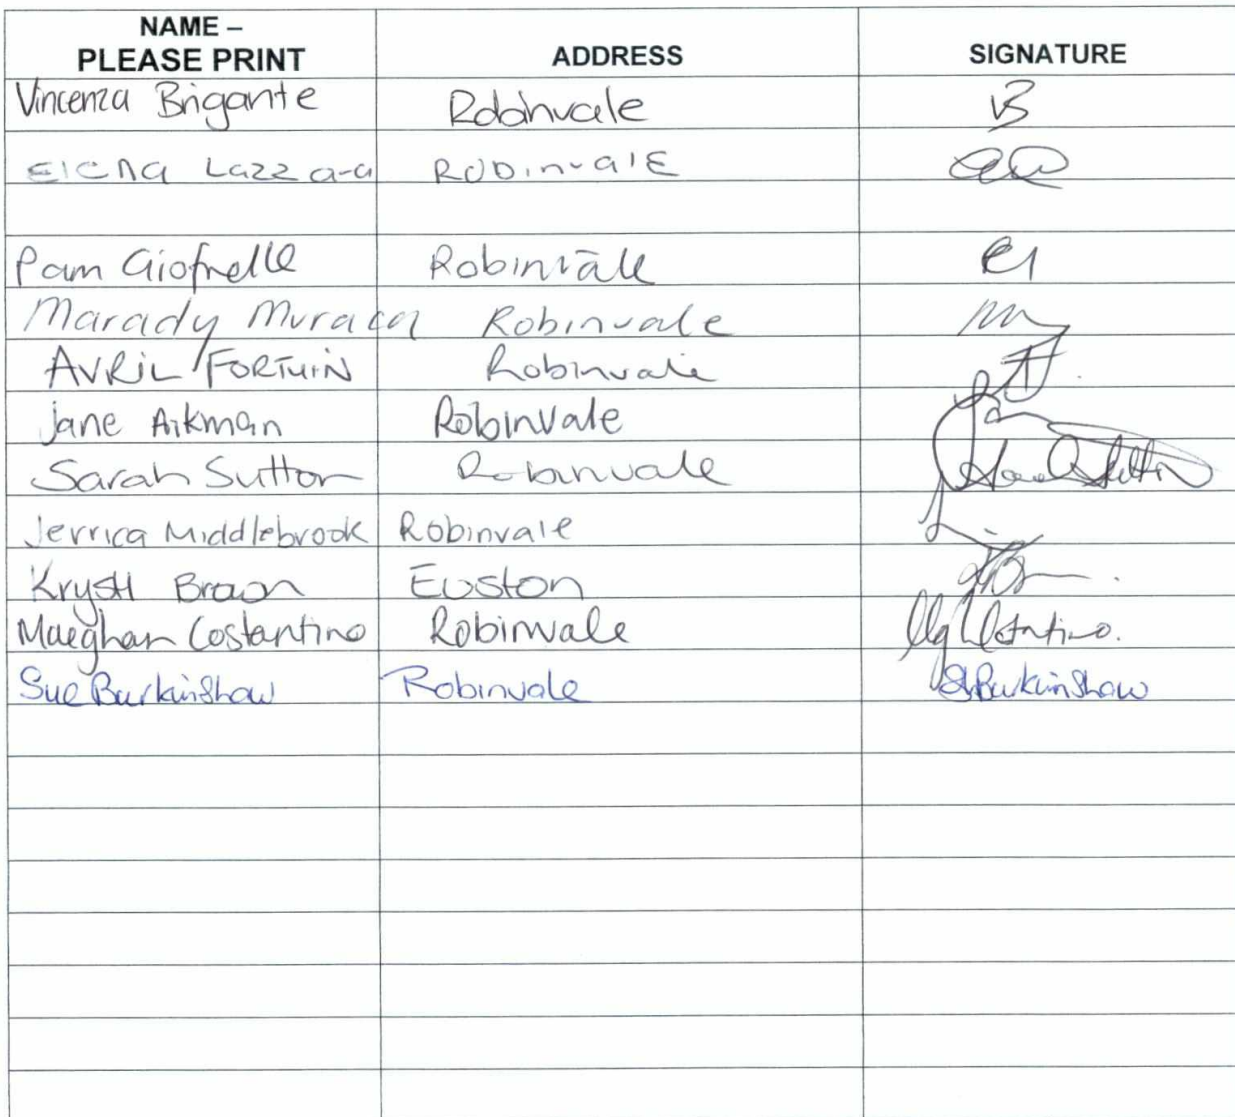 NAME – ADDRESS SIGNATURE
PLEASE PRINT
Vincenza Brigante Robinvale VB
Elena Lazzara Robinvale
Pam Giofrelle Robinvale
Marady Muraca Robinvale
AVRIL FORTUIN Robinvale
Jane Aikman Robinvale
Sarah Sutton Robinvale Sarah Sutton
Jerrica Middlebrook Robinvale
Krystl Braon Euston
Maeghan Costantino Robinvale
Sue Burkinshaw Robinvale SBurkinshaw